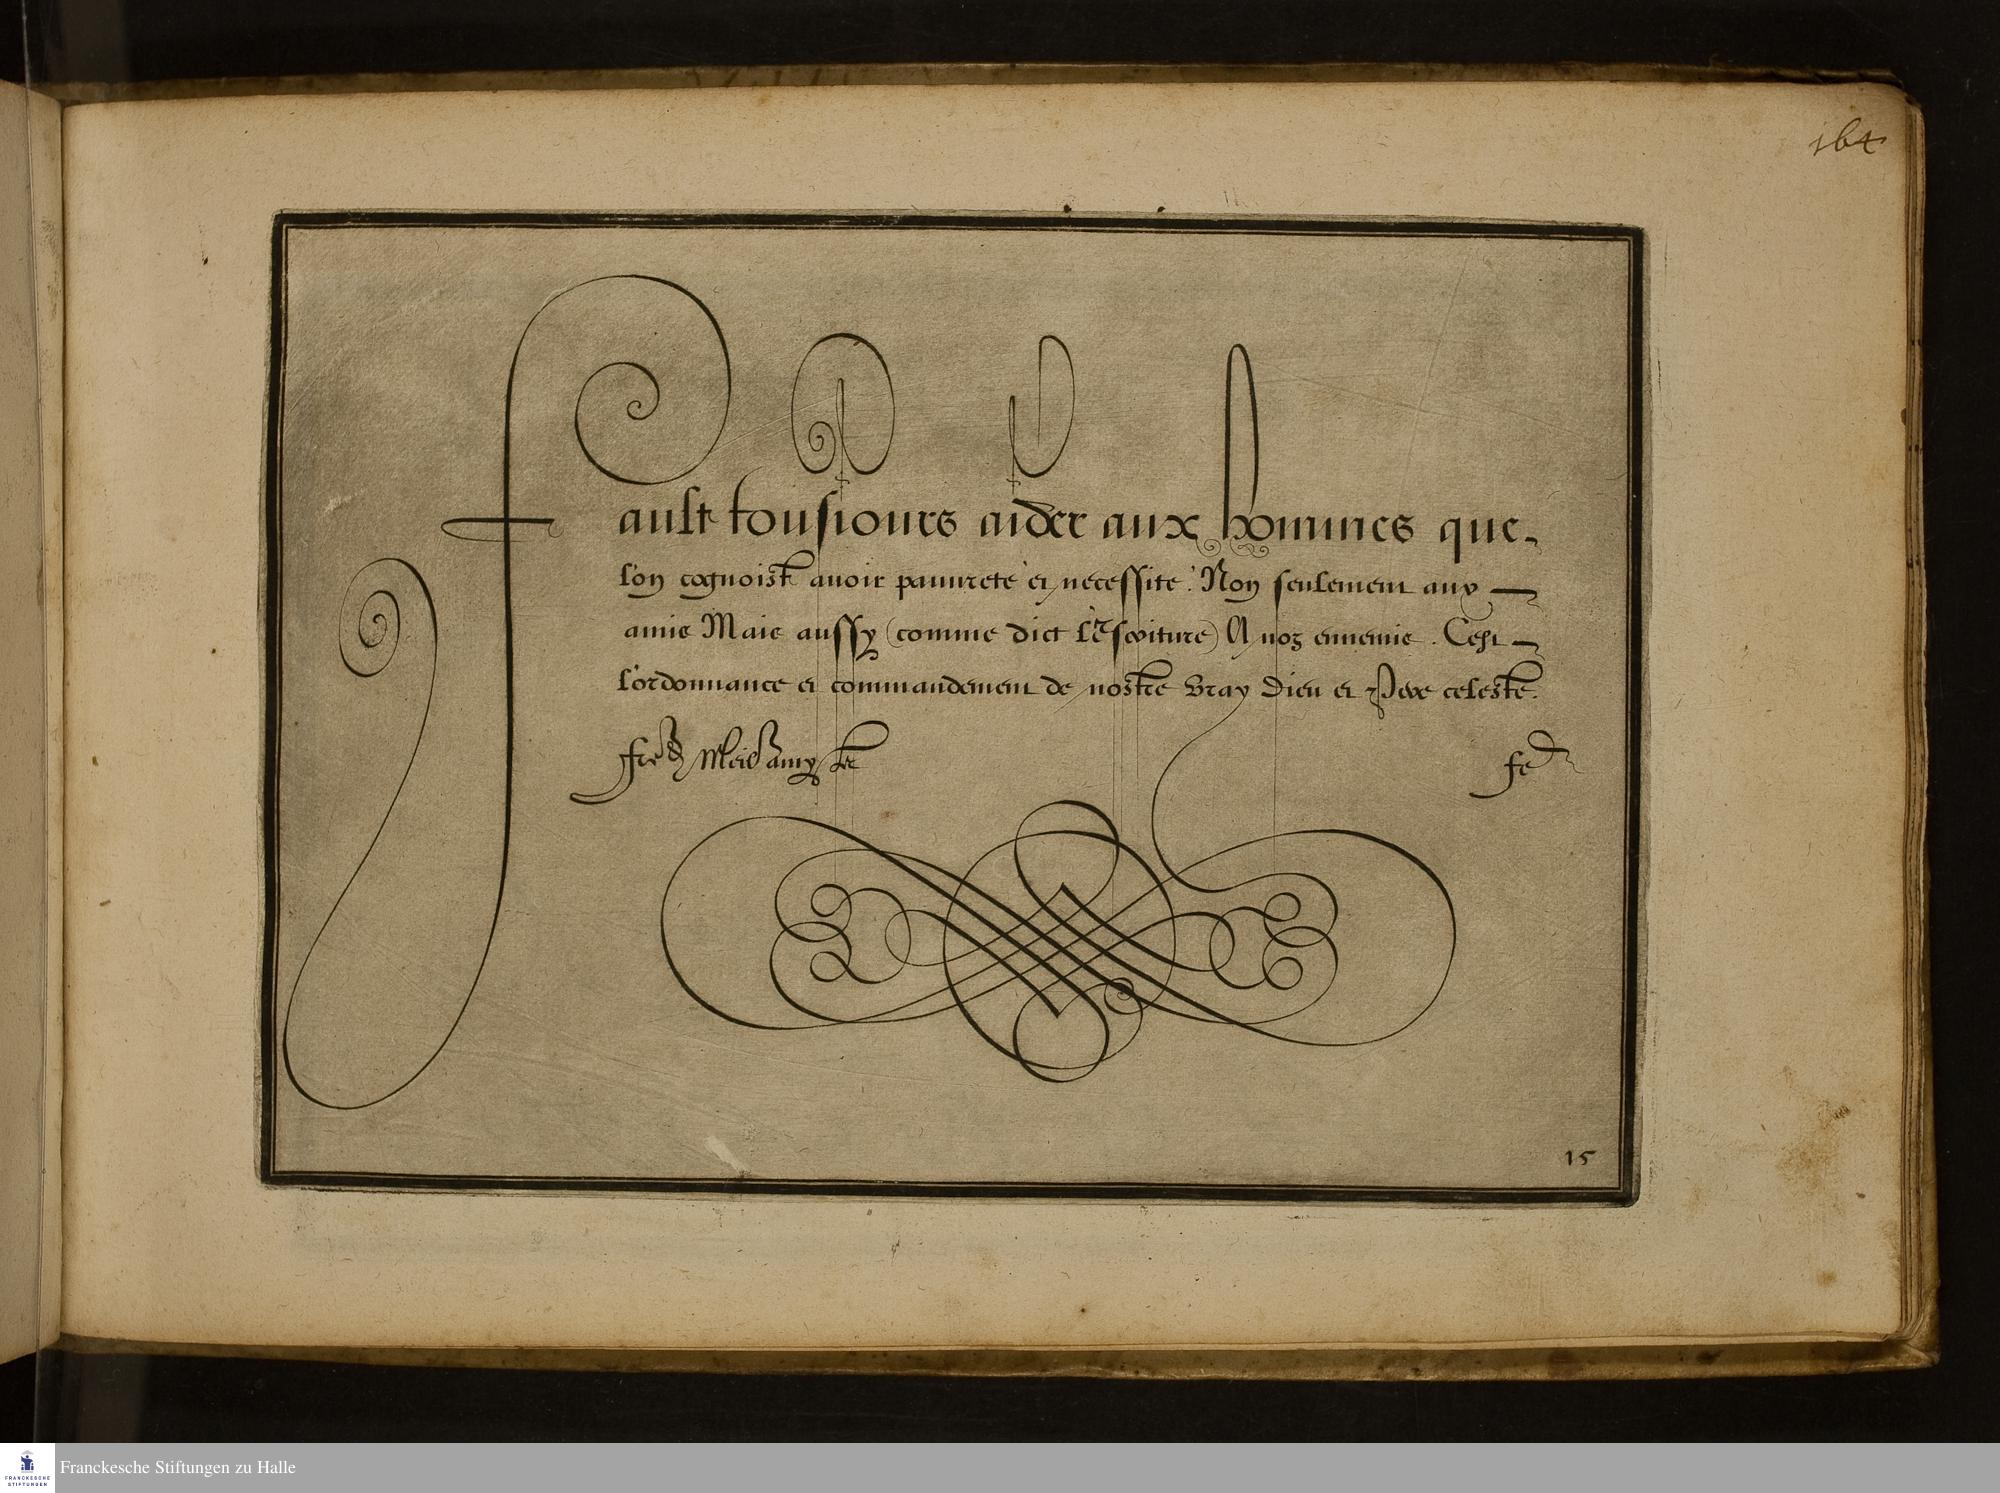 164
Fault tousiours aider aux hommes que
l'on cognoist avoir pauurete et necessite. Non seulement aux
amis Mais aussy (comme dict l'escriture) A noz ennemis. Cest
l'ordonnance et commandement de nostre vray Dieu et Pere celeste.
15
Franckesche Stiftungen zu Halle
FRANCKESCHE
STIFTUNGEN